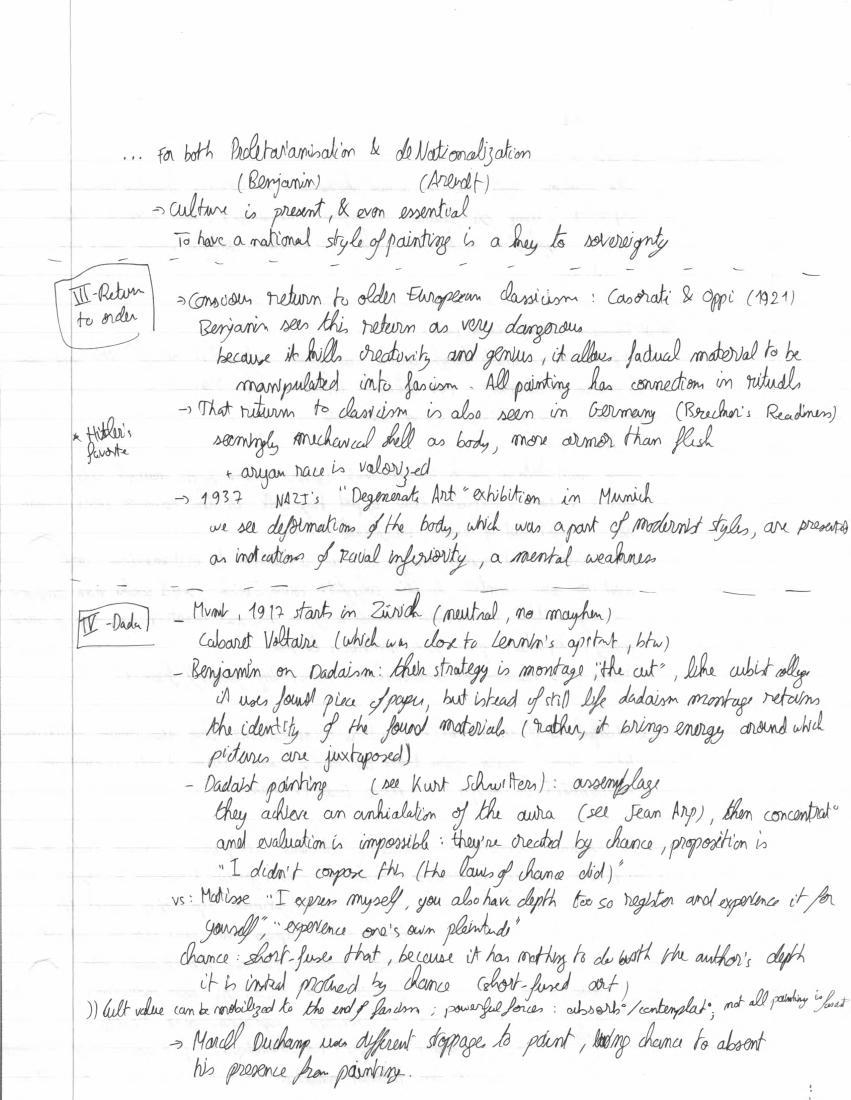 ... For both Proletarianisation & deNationalization
(Benjamin) (Arendt)
→ Culture is present, & even essential
To have a national style of painting is a key to sovereignty
III - Return to order
→ Conscious return to older European classicism : Casorati & Oppi (1921)
Benjamin sees this return as very dangerous
because it kills creativity and genius, it allows factual material to be
manipulated into fascism. All painting has connection in rituals
→ That return to classicism is also seen in Germany (Brecker's Readiness)
* Hitler's favorite
seemingly mechanical shell as body, more armor than flesh
+ aryan race is valorized
→ 1937 NAZI's "Degenerate Art" exhibition in Munich
we see deformations of the body, which was a part of modernist styles, are presented
as indications of racial inferiority, a mental weakness
IV - Dada
- Mvmt, 1917 starts in Zürich (neutral, no mayhem)
Cabaret Voltaire (which was close to Lennin's aptmt, btw)
- Benjamin on Dadaism: their strategy is montage, "the cut", like cubist collage
it uses found piece of paper, but istead of still life dadaism montage retains
the identity of the found materials (rather, it brings energy around which
pictures are juxtaposed)
- Dadaist painting (see Kurt Schwitters): assemplage
they achieve an anhialation of the aura (see Jean Arp), then concentrat°
and evaluation is impossible : they're created by chance, proposition is
"I didn't compose this (the laws of chance did)"
vs: Matisse "I express myself, you also have depth too so register and experience it for
yourself", "experience one's own plenitude"
chance : short-fuses that, because it has nothing to do with the author's depth
it is insted by chance (short-fused art)
)) Cult value can be mobilized to the end of fascism ; powerful forces : absorb°/contemplat°, not all painting is
→ Marcel Duchamp uses different stoppages to paint, chance to absent
his presence from painting.